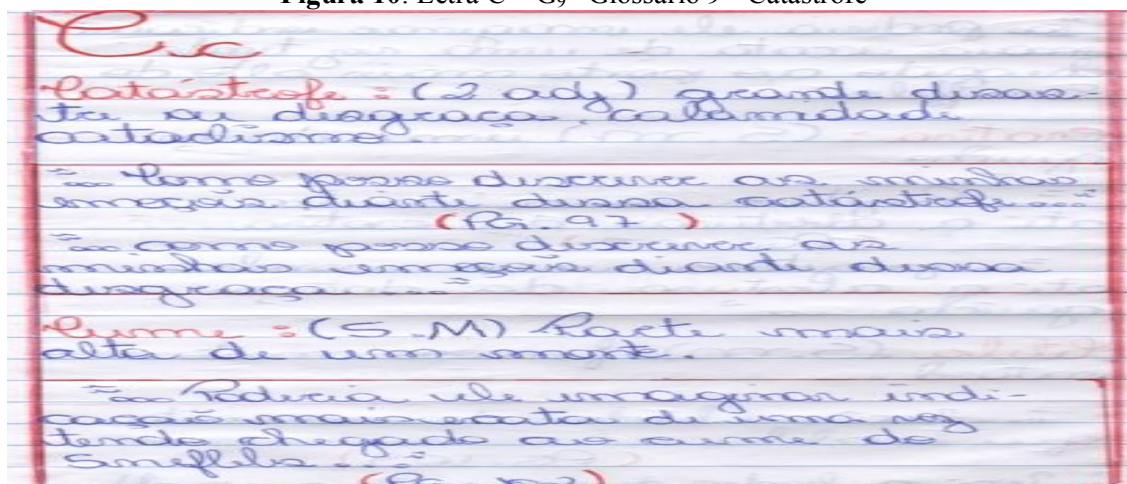 Figura 10: Letra C – G9 - Glossário 9 – Catástrofe
Cc
Catástrofe : (2 adj) grande disas-
tre ou disgraça, calamidade
cataclismo.
"... Como posso discrever as minhas
emoções diante dessa catástrofe ...."
(PG. 97 )
"... como posso discrever as
minhas emoções diante dessa
disgraça ...."
Cume : (S.M) Parte mais
alta de um monte.
"... Poderia ele imaginar indi-
cação mais exata de uma vez
tendo chegado ao cume do
Sneffels ...."